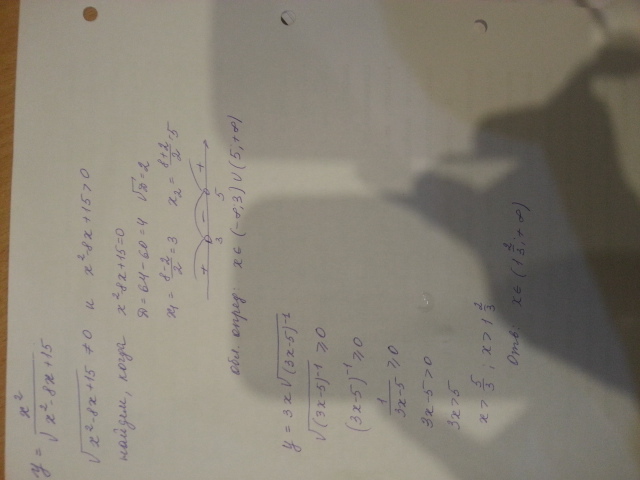 y = x² / √(x²-8x+15)
√(x²-8x+15) ≠ 0 и x²-8x+15>0
найдем, когда x²-8x+15=0
D=64-60=4 √D=2
x₁ = (8-2)/2 = 3 x₂ = (8+2)/2 = 5
+ - +
3 5
обл. опред: x∈(-∞;3)∪(5;+∞)
y = 3x√((3x-5)⁻¹)
√((3x-5)⁻¹) ⩾0
(3x-5)⁻¹ ⩾0
1/(3x-5) ⩾0
3x-5>0
3x>5
x> 5/3; x>1 2/3
Отв: x∈(1 2/3; +∞)